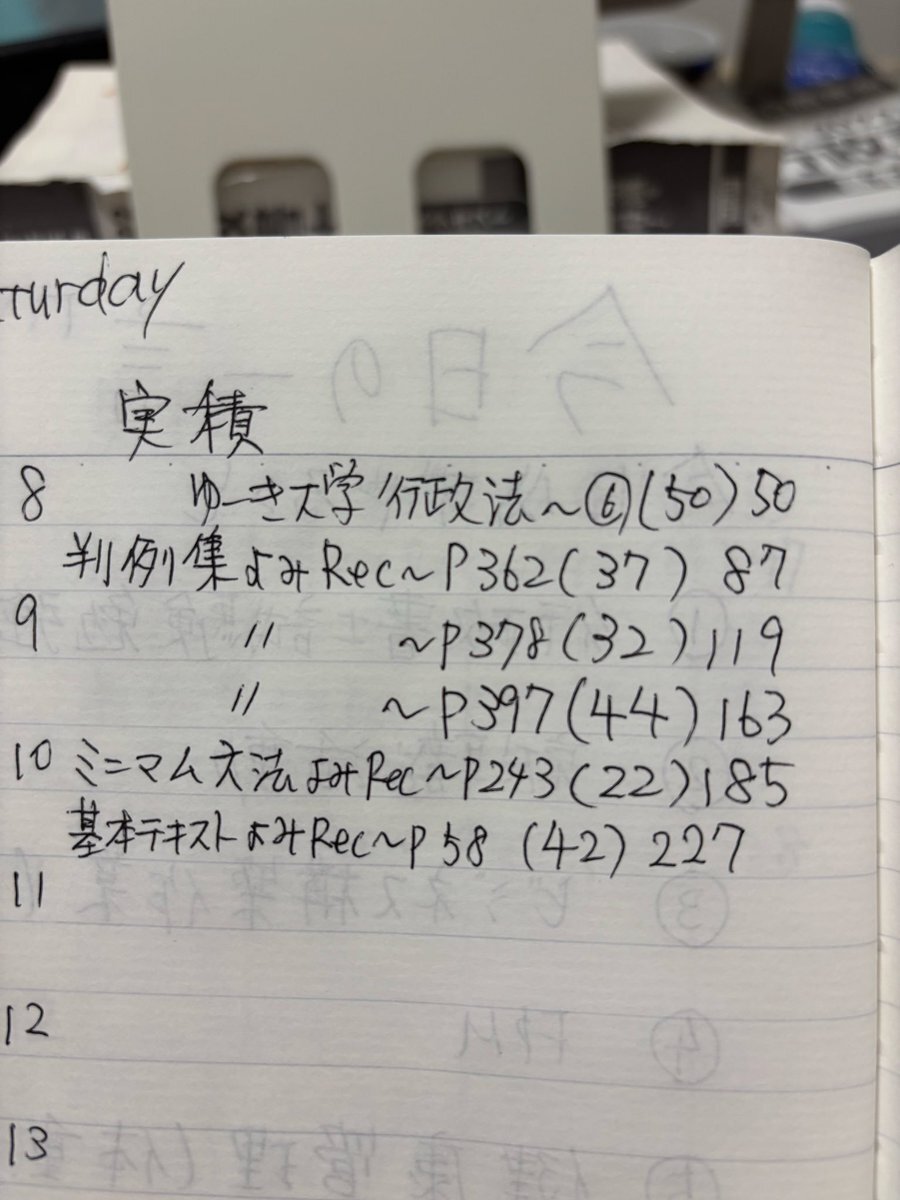 turday
実積
8 ゆーき大学 行政法～⑥(50) 50
判例集よみRec～P362(37) 87
9 〃 ～P378(32) 119
〃 ～P397(44) 163
10 ミニマム文法よみRec～P243(22) 185
基本テキストよみRec～P58 (42) 227
11
12
13